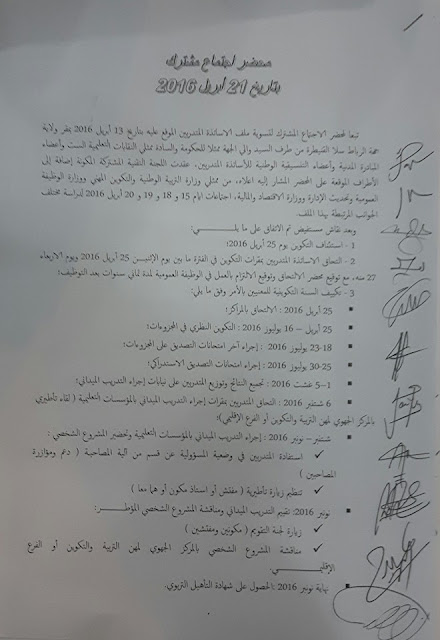 محضر اجتماع مشترك
بتاريخ 21 أبريل 2016
تبعا لمحضر الاجتماع المشترك لتسوية ملف الاساتذة المتدربين الموقع عليه بتاريخ 13 أبريل 2016 بمقر ولاية
جهة الرباط سلا القنيطرة من طرف السيد والي الجهة ممثلا للحكومة والسادة ممثلي النقابات التعليمية الست وأعضاء
المبادرة المدنية وأعضاء التنسيقية الوطنية للأساتذة المتدربين، عقدت اللجنة التقنية المشتركة المكونة إضافة إلى
الأطراف الموقعة على المحضر المشار إليه اعلاه، من ممثلي وزارة التربية الوطنية والتكوين المهني ووزارة الوظيفة
العمومية وتحديث الإدارة ووزارة الاقتصاد والمالية، اجتماعات ايام 15 و 18 و 19 و 20 أبريل 2016 لدراسة مختلف
الجوانب المرتبطة بهذا الملف.
وبعد نقاش مستفيض تم الاتفاق على ما يلـــي:
1 - استئناف التكوين يوم 25 أبريل 2016؛
2 - التحاق الاساتذة المتدربين بمقرات التكوين في الفترة ما بين يوم الإثنيين 25 أبريل 2016 ويوم الاربعاء
27 منه، مع توقيع محضر الالتحاق وتوقيع الالتزام بالعمل في الوظيفة العمومية لمدة ثماني سنوات بعد التوظيف؛
3 - تكييف السنة التكوينية للمعنيين بالأمر وفق ما يلي:
▪ 25 أبريل 2016 : الالتحاق بالمراكز؛
▪ 25 أبريل – 16 يوليوز 2016 : التكوين النظري في المجزوءات؛
▪ 18-23 يوليوز 2016 : إجراء آخر امتحانات التصديق على المجزوءات؛
▪ 25-30 يوليوز 2016 : إجراء امتحانات التصديق الاستدراكي؛
▪ 1–5 غشت 2016 : تجميع النتائج وتوزيع المتدربين على نيابات إجراء التدريب الميداني؛
▪ 6 شتنبر 2016 : التحاق المتدربين بمقرات إجراء التدريب الميداني بالمؤسسات التعليمية ( لقاء تأطيري
بالمركز الجهوي لمهن التربية والتكوين أو الفرع الإقليمي)؛
▪ شتنبر – نونبر 2016 : إجراء التدريب الميداني بالمؤسسات التعليمية وتحضير المشروع الشخصي :
✓ استفادة المتدربين في وضعية المسؤولية عن قسم من آلية المصاحبة ( دعم ومؤازرة
المصاحبين )
✓ تنظيم زيارة تأطيرية ( مفتش أو استاذ مكون أو هما معا )
▪ نونبر 2016: تقييم التدريب الميداني ومناقشة المشروع الشخصي المؤطـــر:
✓ زيارة لجنة التقويم ( مكونين ومفتشين )
✓ مناقشة المشروع الشخصي بالمركز الجهوي لمهن التربية والتكوين أو الفرع
الإقليمـــي.
▪ نهاية نونبر 2016 :الحصول على شهادة التأهيل التربوي.